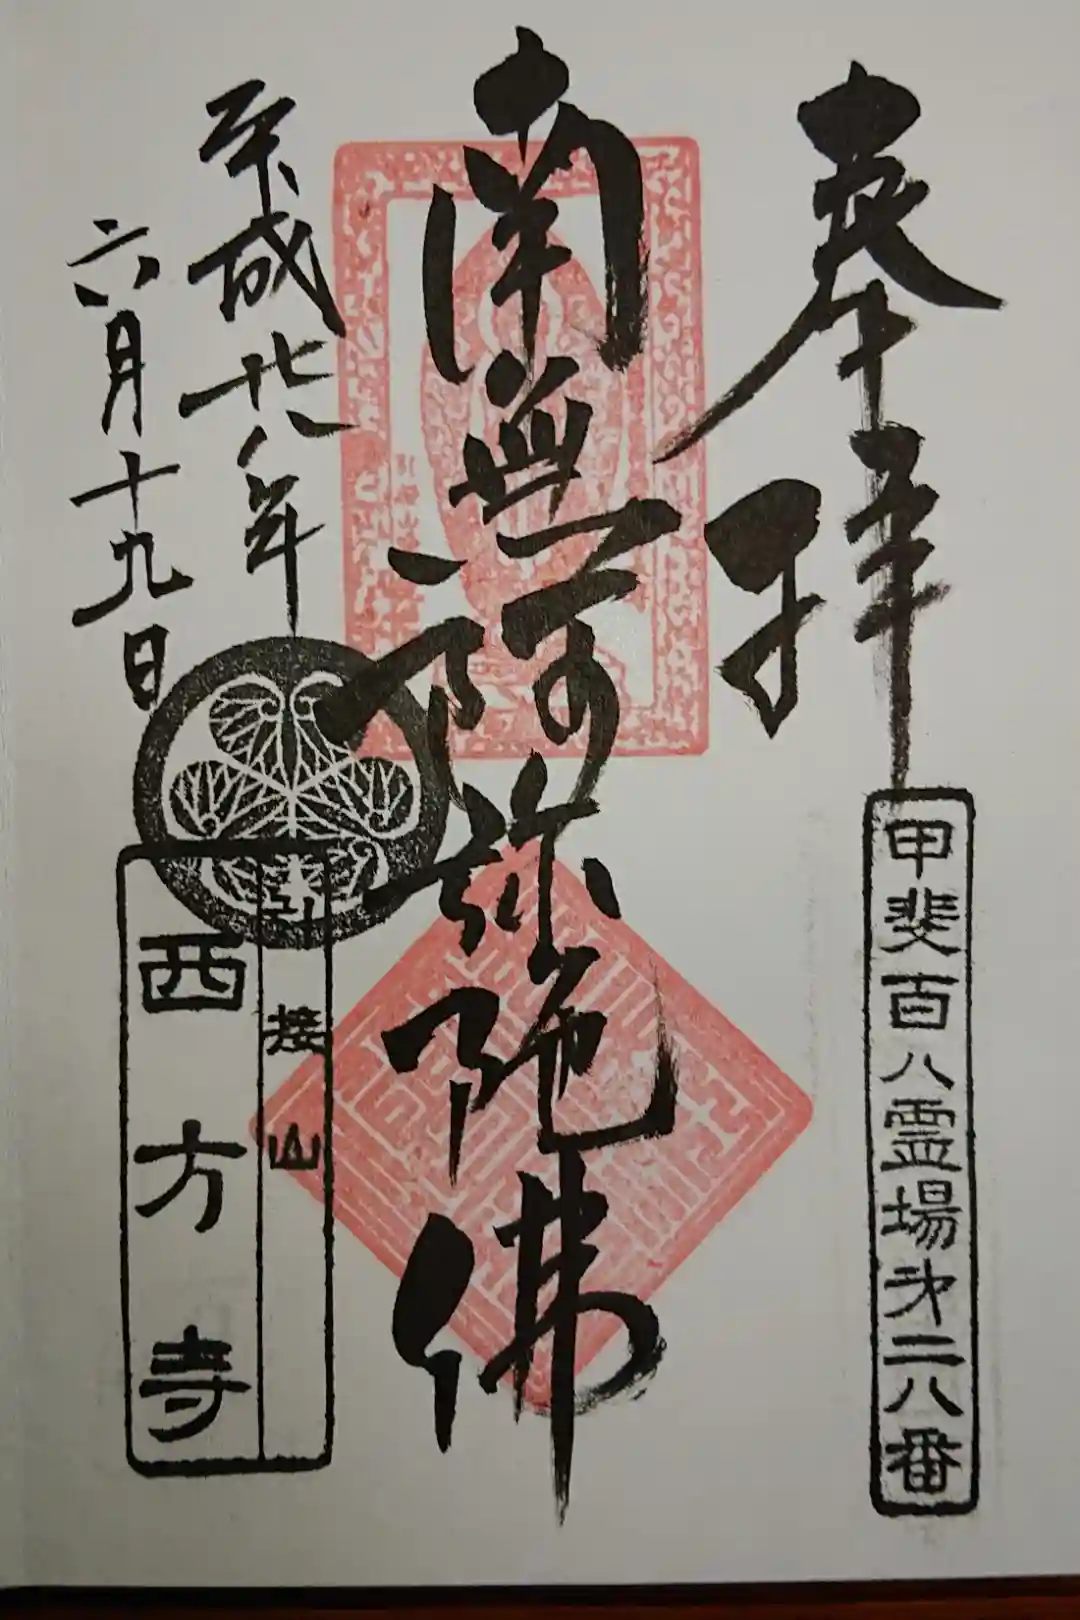 奉拝
甲斐百八霊場第二八番
南無阿弥陀佛
平成廿八年
六月十九日
接山
西方寺